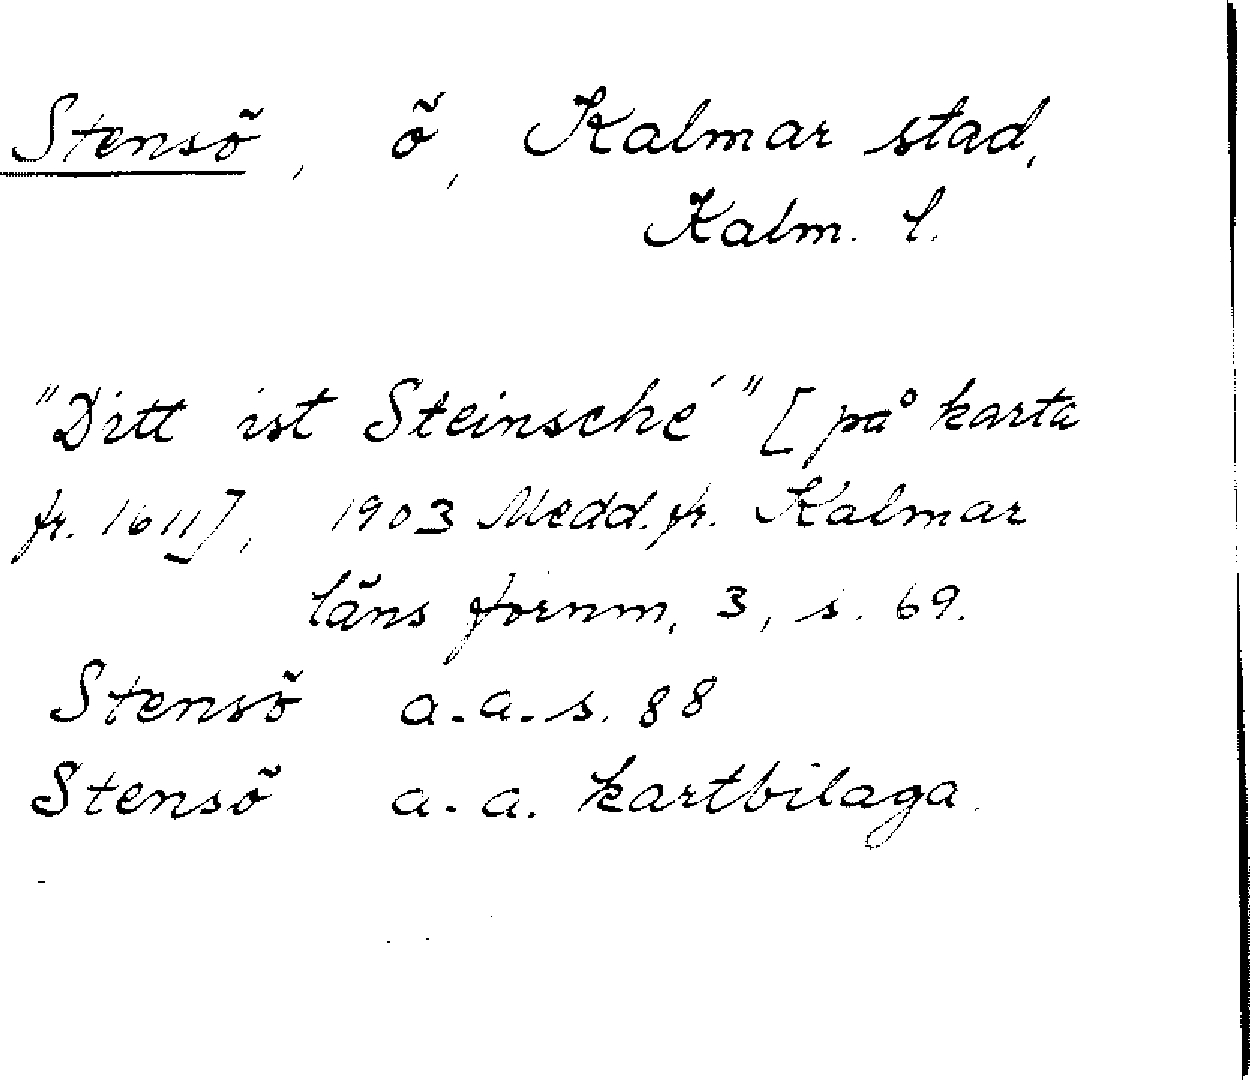 Stensö, ö, Kalmar stad,
Kalm. l.
"Ditt ist Steinsché" [på karta
fr. 1611], 1903 Medd. fr. Kalmar
läns fornm, 3, s. 69.
Stensö a.a.s. 88
Stensö a.a. kartbilaga.